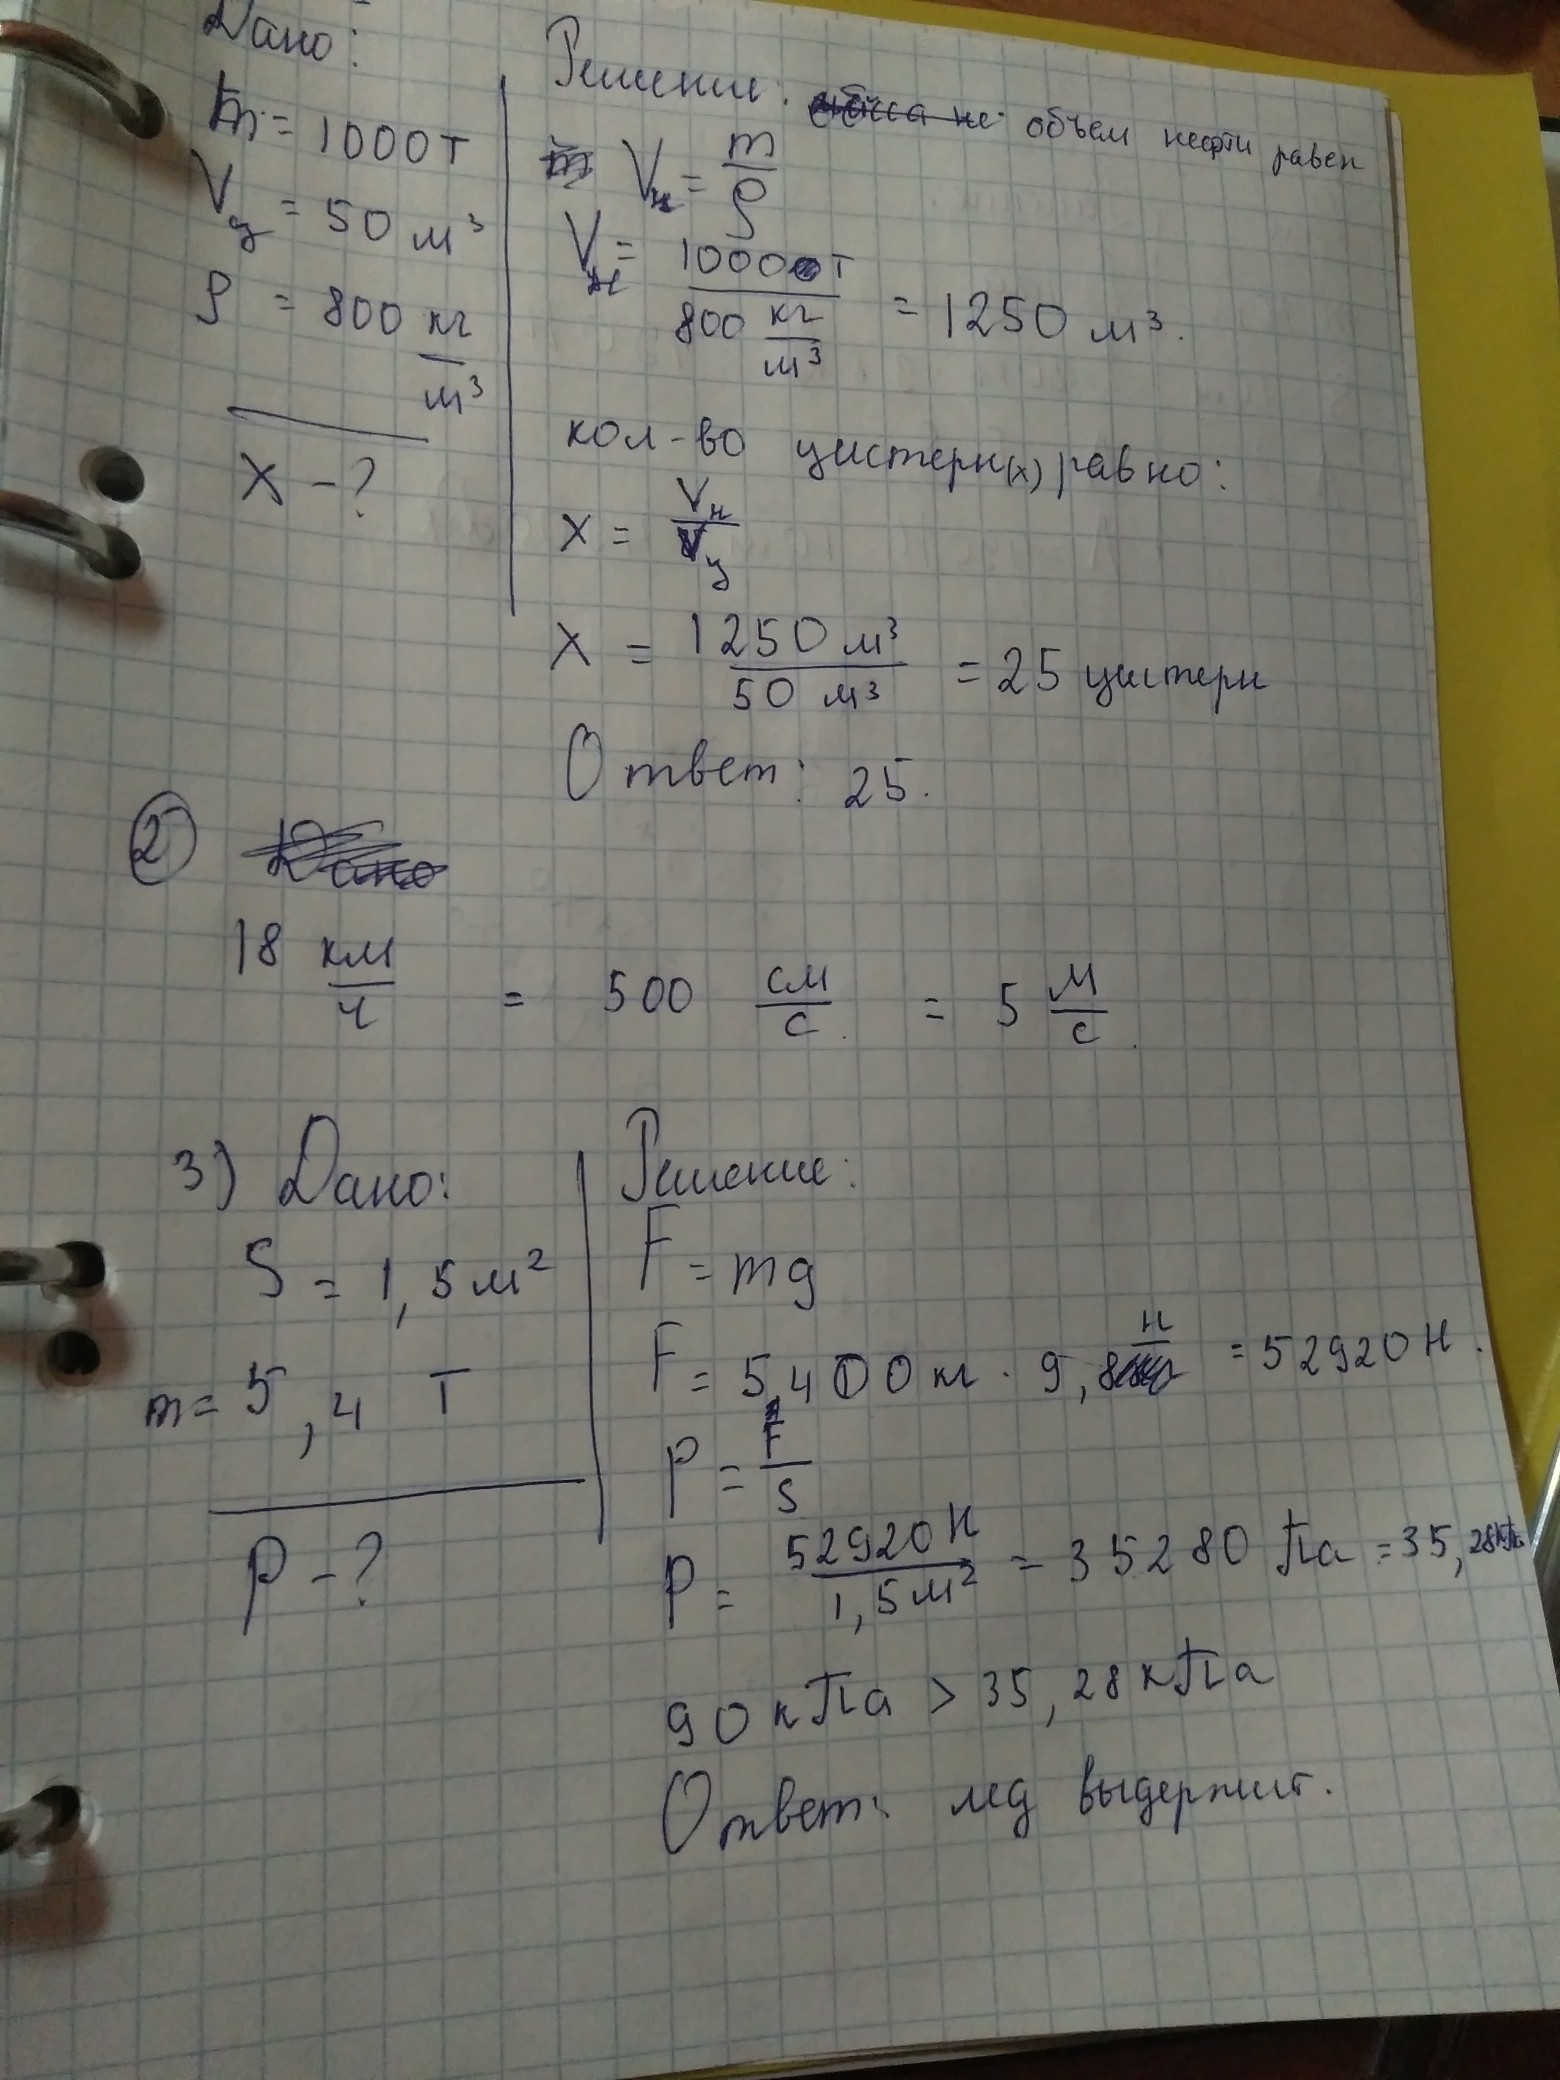 Дано:
m = 1000 т
Vц = 50 м³
ρ = 800 кг/м³
x - ?
Решение: объем нефти равен
Vн = m/ρ
Vн = 1000 т / 800 кг/м³ = 1250 м³.
кол-во цистерн(x) равно:
x = Vн/Vц
x = 1250 м³ / 50 м³ = 25 цистерн
Ответ: 25.
2)
18 км/ч = 500 см/с = 5 м/с.
3) Дано:
S = 1,5 м²
m = 5,4 т
p - ?
Решение:
F = mg
F = 5400 кг · 9,8 Н = 52920 Н.
p = F/S
p = 52920 Н / 1,5 м² = 35280 Па = 35,28 кПа
90 кПа > 35,28 кПа
Ответ: лед выдержит.